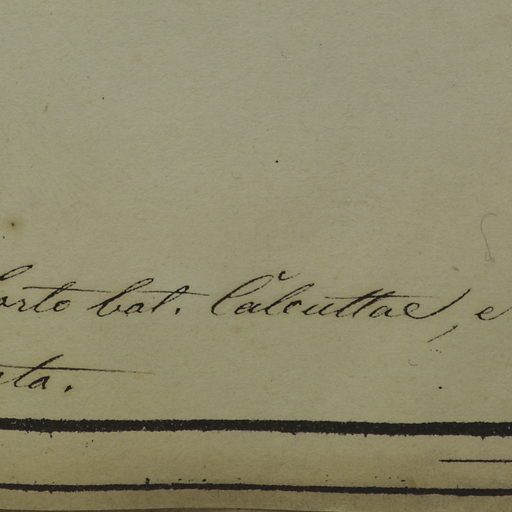 orto bat. Calcuttae, e
ta.